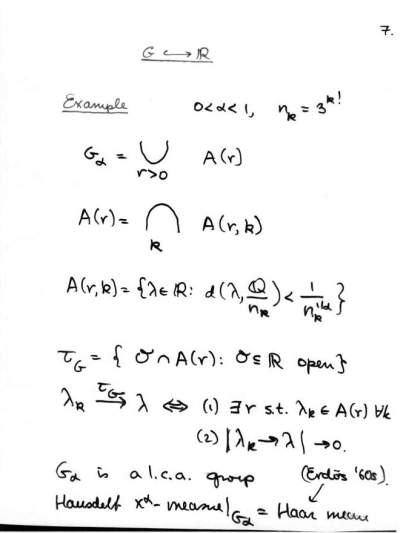 7.
G ↪ ℝ
Example 0<α<1, n_k = 3^{k!}
G_α = ⋃_{r>0} A(r)
A(r) = ⋂_k A(r,k)
A(r,k) = {λ∈ℝ: d(λ, ℚ/n_k) < 1/n_k^{1/α}}
τ_G = { O∩A(r): O⊆ℝ open}
λ_k →^{τ_G} λ ⇔ (1) ∃r s.t. λ_k ∈ A(r) ∀k
(2) |λ_k→λ| →0.
G_α is a l.c.a. group (Erdös '60s).
Hausdelf x^α-measure|_{G_α} = Haar meaure